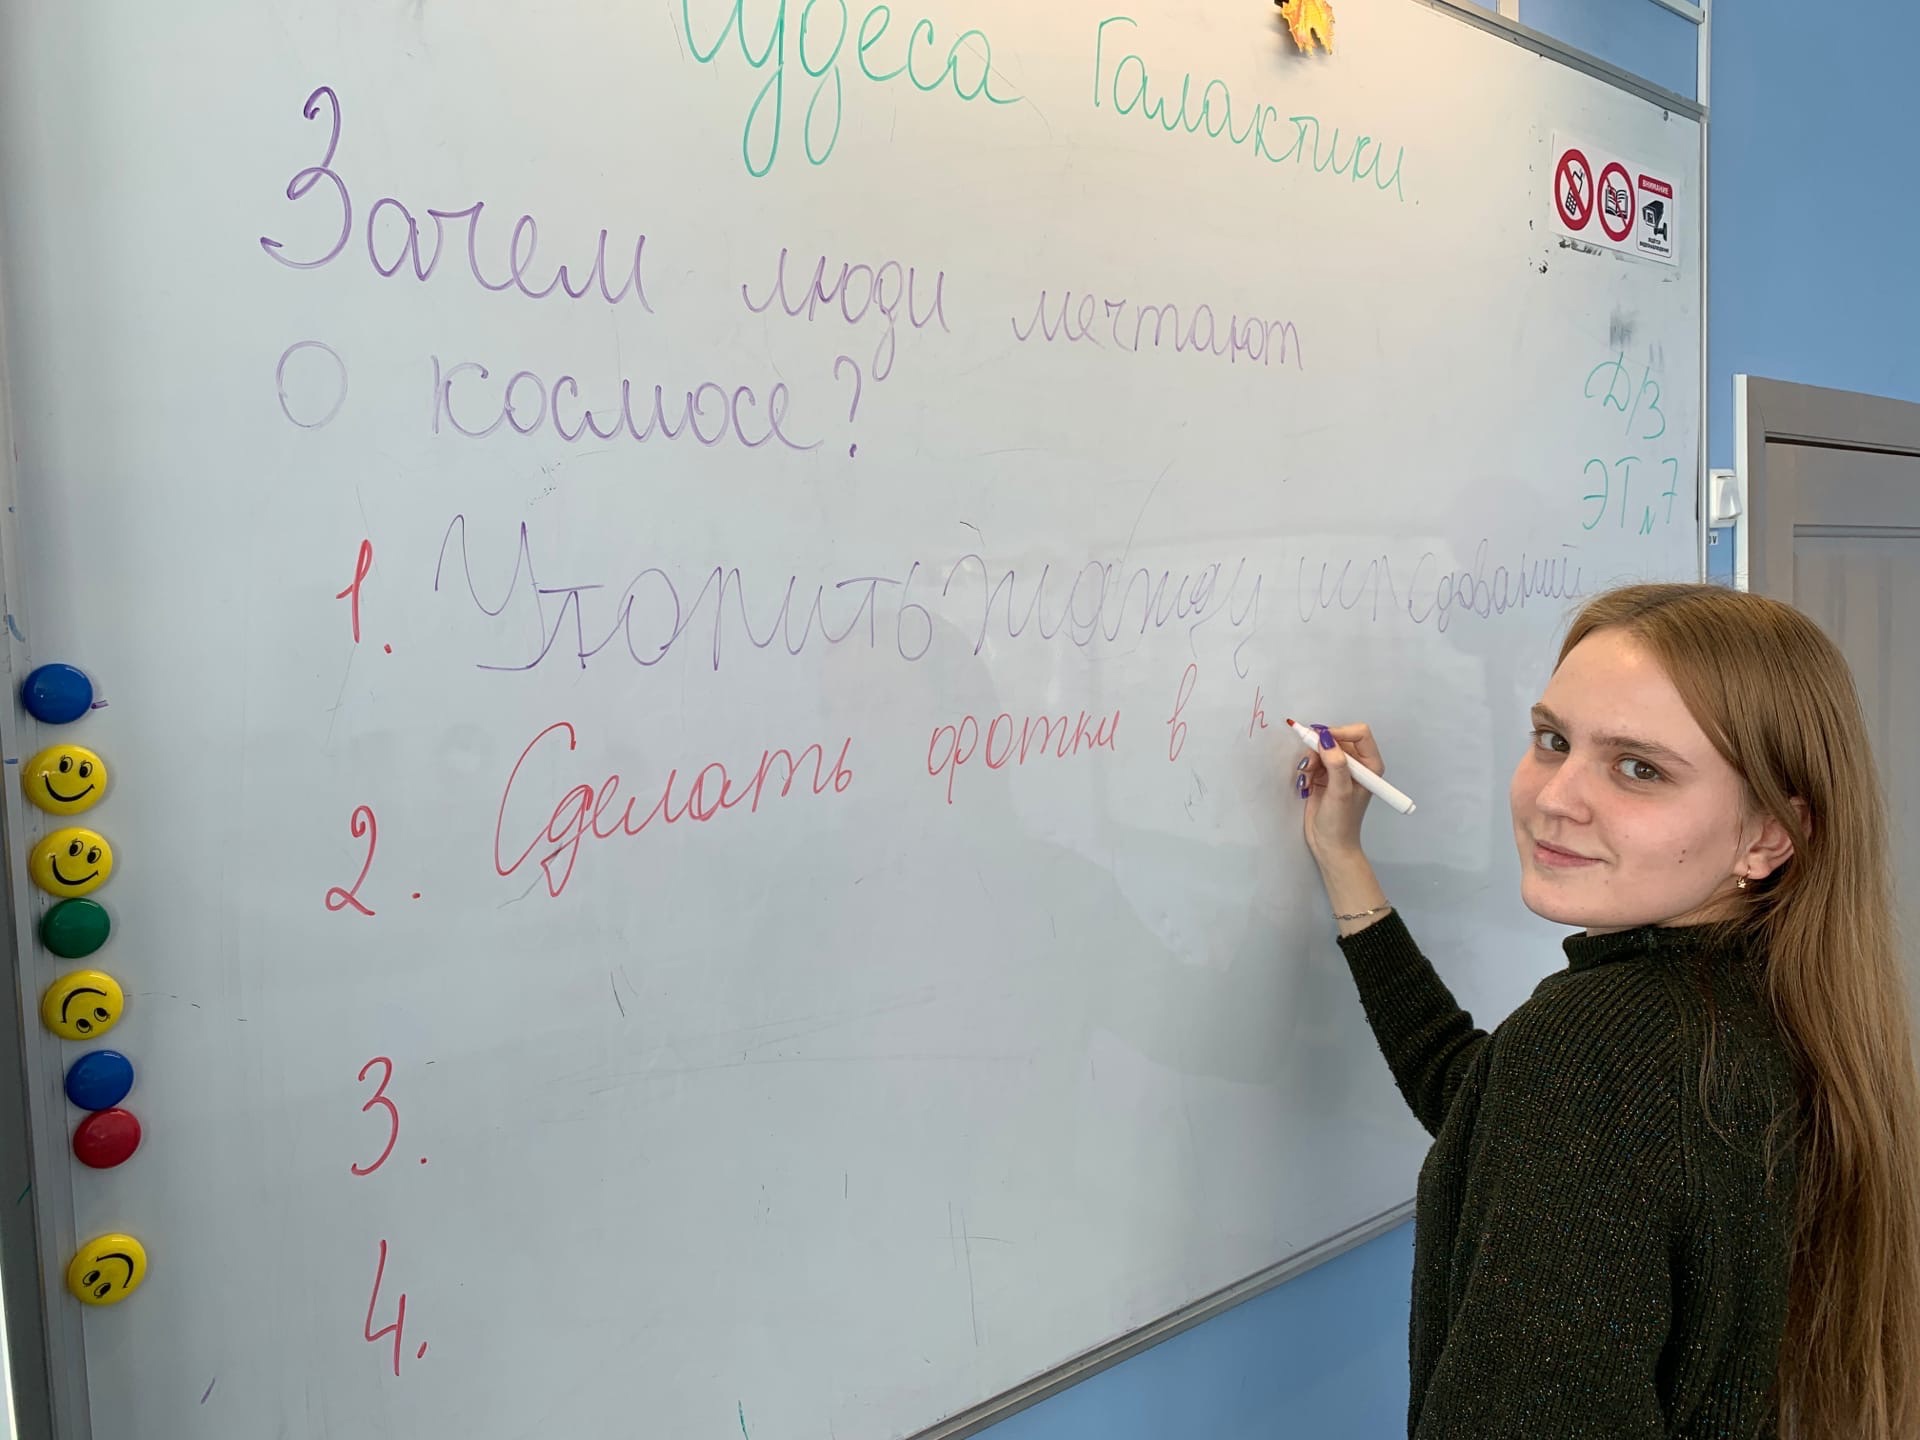 Чудеса Галактики.
Зачем люди мечтают
о космосе?
1. Утолить жажду исследований
2. Сделать фотки в к
3.
4.
ВНИМАНИЕ
ВЕДЁТСЯ
ВИДЕОНАБЛЮДЕНИЕ
Д/З
ЭТ №7